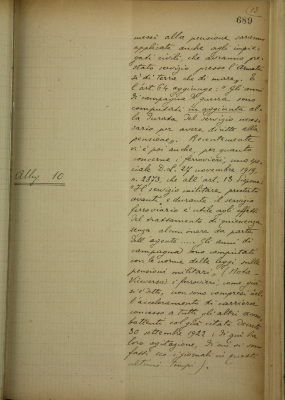 (13)
689
messi alla pensione saranno
applicate anche agli impie-
gati civili, che avranno pre-
stato servizio presso l'armata
di terra che di mare. E
l'art. 64 aggiunge: "Gli anni
di campagna di guerra sono
computati in aggiunta al
la durata del servizio neces-
sario per avere diritto alla
pensione. Recentemente
vi è poi anche, per quanto
concerne i ferrovieri, uno spe-
ciale D.L. 27 novembre 1919,
n. 2373, che all'art. 13 dispone:
"Il servizio militare prestato
avanti e durante il servizio
ferroviario è utile agli effetti
del trattamento di quiescenza
senza alcun onere da parte
dell'agente..... Gli anni di
campagna sono computati
con le norme delle leggi sulle
pensioni militari". (Nota-
Viceversa i ferrovieri, come già
s'è detto, non sono compresi nel
l'acceleramento di carriera
concesso a tutti gli altri com-
battenti col già citato Decreto
30 settembre 1922: di qui la
loro agitazione, di cui si son
fatti eco i giornali in questi
ultimi tempi).
Alleg. 10